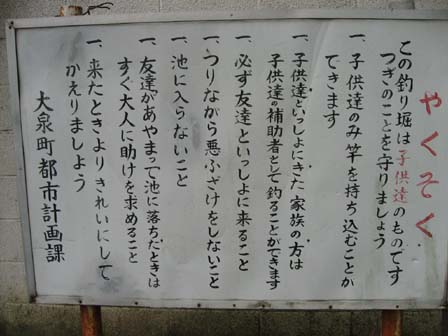 やくそく
この釣り堀は子供達のものです
つぎのことを守りましょう
一、子供達のみ竿を持ち込むことが
できます
一、子供達といっしょにきた家族の方は
子供達の補助者として釣ることができます
一、必ず友達といっしょに来ること
一、つりながら悪ふざけをしないこと
一、池に入らないこと
一、友達があやまって池に落ちたときは
すぐ大人に助けを求めること
一、来たときよりきれいにして
かえりましょう
大泉町都市計画課